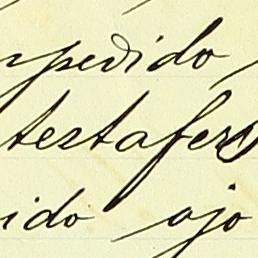 npedido
testafers
ido ojo